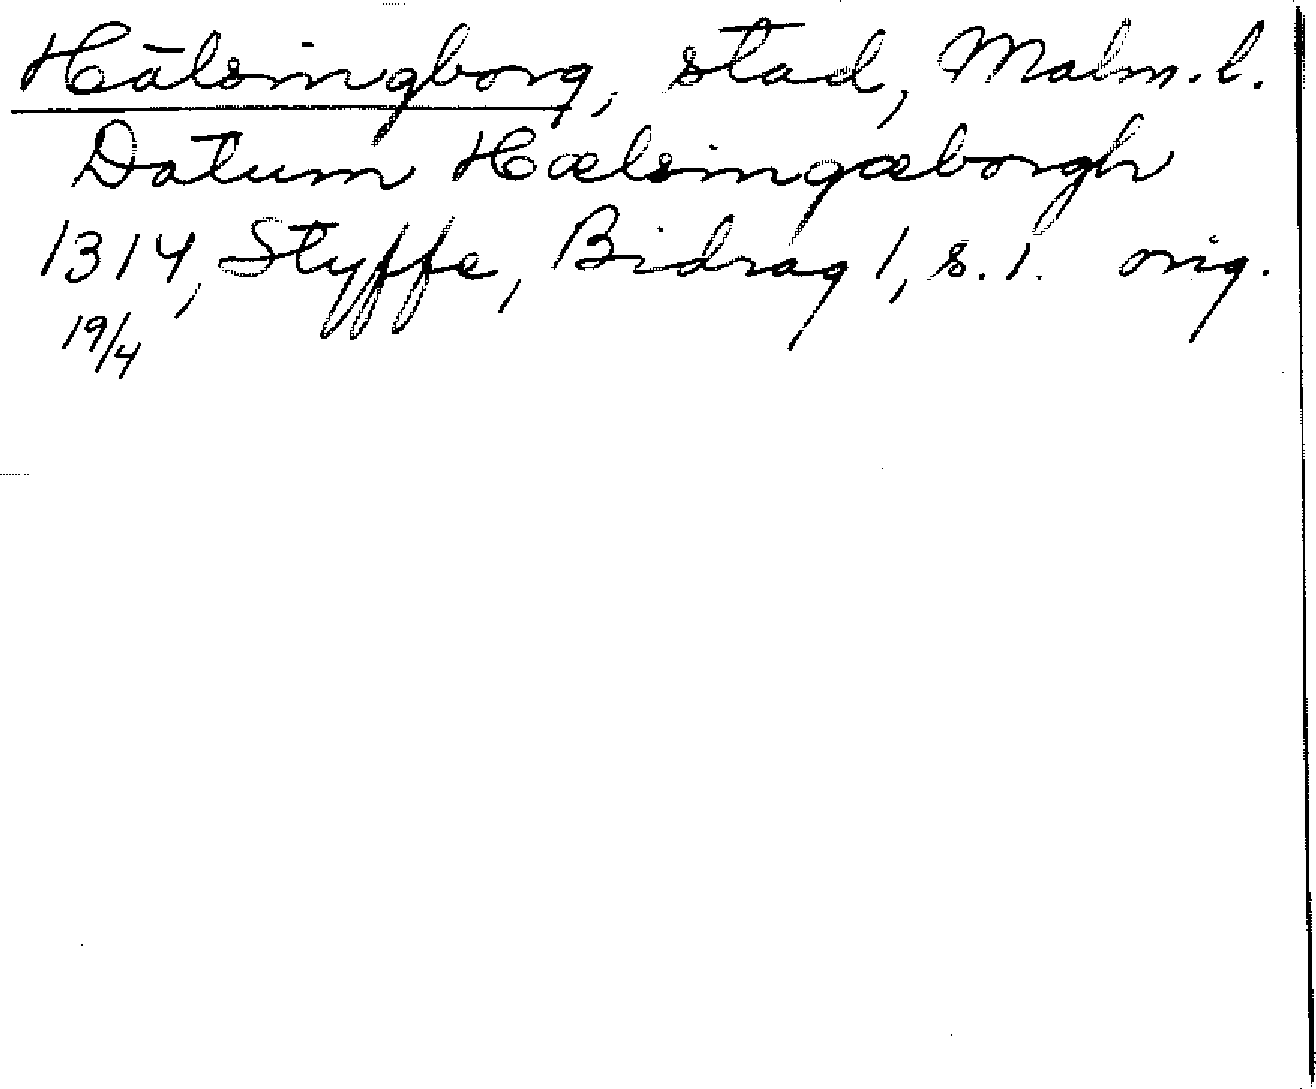 Hälsingborg, stad, Malm. l.
Datum Hælsingæborgh
1314, Styffe, Bidrag 1, s. 1. orig.
19/4